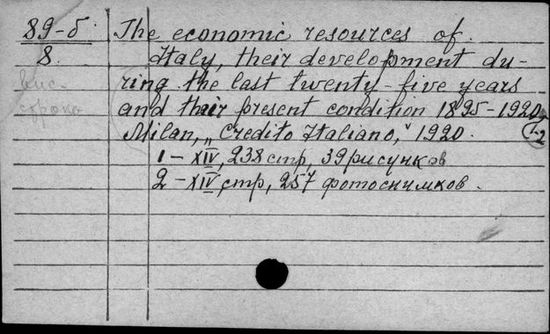 89-б The economic resources of
8. Italy, their development du-
ring the last twenty-five years
and their present condition 1895-1920
Milan, „Credito Italiano," 1920. 1-2
1 - XIV, 238 стр, 39 рисунков
2 - XIV стр, 257 фотоснимков.